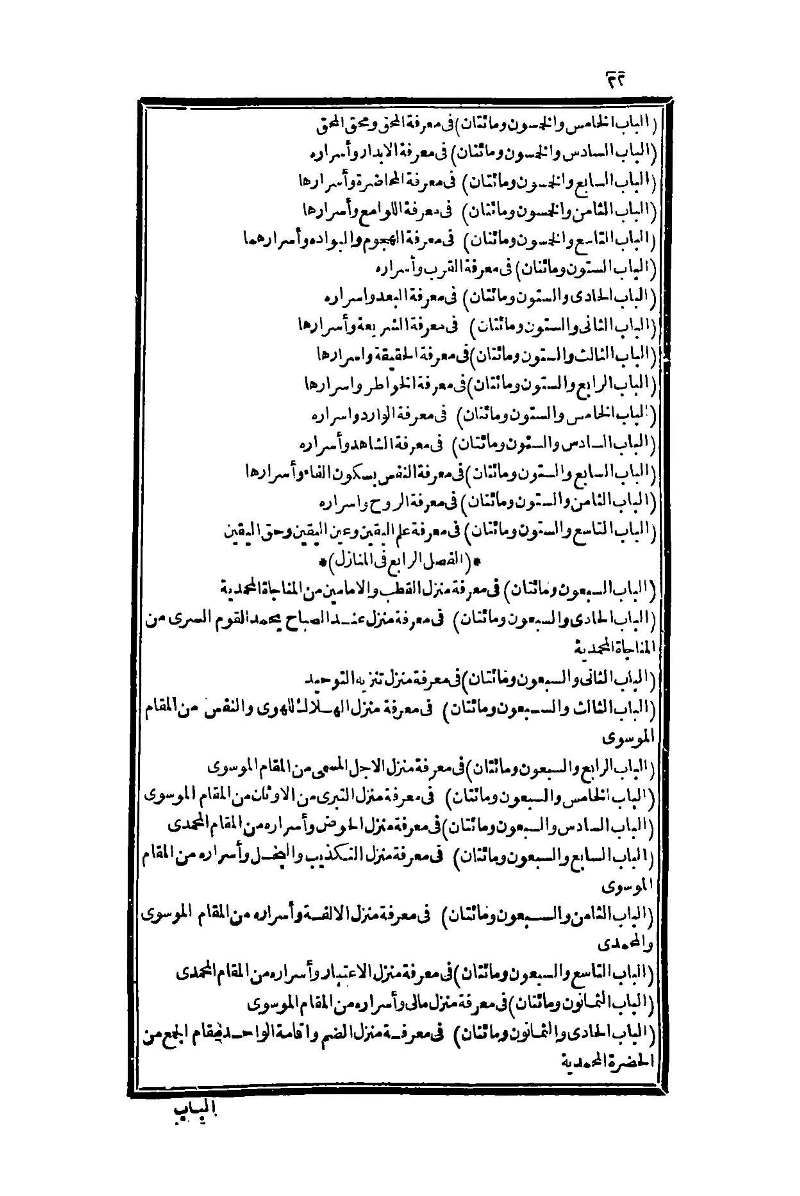 ٢٢
(الباب الخامس والخمسون ومائتان) فى معرفة المحق ومحق المحق
(الباب السادس والخمسون ومائتان) فى معرفة الابدار وأسراره
(الباب السابع والخمسون ومائتان) فى معرفة المحاضرة وأسرارها
(الباب الثامن والخمسون ومائتان) فى معرفة اللوامع وأسرارها
(الباب التاسع والخمسون ومائتان) فى معرفة الهجوم والبواده وأسرارهما
(الباب الستون ومائتان) فى معرفة القرب وأسراره
(الباب الحادى والستون ومائتان) فى معرفة البعد واسراره
(الباب الثانى والستون ومائتان) فى معرفة الشريعة وأسرارها
(الباب الثالث والستون ومائتان) فى معرفة الحقيقة واسرارها
(الباب الرابع والستون ومائتان) فى معرفة الخواطر واسرارها
(الباب الخامس والستون ومائتان) فى معرفة الوارد واسراره
(الباب السادس والستون ومائتان) فى معرفة الشاهد وأسراره
(الباب السابع والستون ومائتان) فى معرفة النفس بسكون الفاء وأسرارها
(الباب الثامن والستون ومائتان) فى معرفة الروح واسراره
(الباب التاسع والستون ومائتان) فى معرفة علم اليقين وعين اليقين وحق اليقين
*(الفصل الرابع فى المنازل)*
(الباب السبعون ومائتان) فى معرفة منزل القطب والامامين من المناجاة المحمدية
(الباب الحادى والسبعون ومائتان) فى معرفة منزل عند الصباح يحمد القوم السرى من
المناجاة المحمدية
(الباب الثانى والسبعون ومائتان) فى معرفة منزل تنزيه التوحيد
(الباب الثالث والسبعون ومائتان) فى معرفة منزل الهلاك للهوى والنفس من المقام
الموسوى
(الباب الرابع والسبعون ومائتان) فى معرفة منزل الاجل المسمى من المقام الموسوى
(الباب الخامس والسبعون ومائتان) فى معرفة منزل التبرى من الاوثان من المقام الموسوى
(الباب السادس والسبعون ومائتان) فى معرفة منزل الحوض وأسراره من المقام المحمدى
(الباب السابع والسبعون ومائتان) فى معرفة منزل التكذيب والبخل وأسراره من المقام
الموسوى
(الباب الثامن والسبعون ومائتان) فى معرفة منزل الالفة وأسراره من المقام الموسوى
والمحمدى
(الباب التاسع والسبعون ومائتان) فى معرفة منزل الاعتبار وأسراره من المقام المحمدى
(الباب الثمانون ومائتان) فى معرفة منزل مالى وأسراره من المقام الموسوى
(الباب الحادى والثمانون ومائتان) فى معرفة منزل الضم واقامة الواحد مقام الجمع من
الحضرة المحمدية
الباب